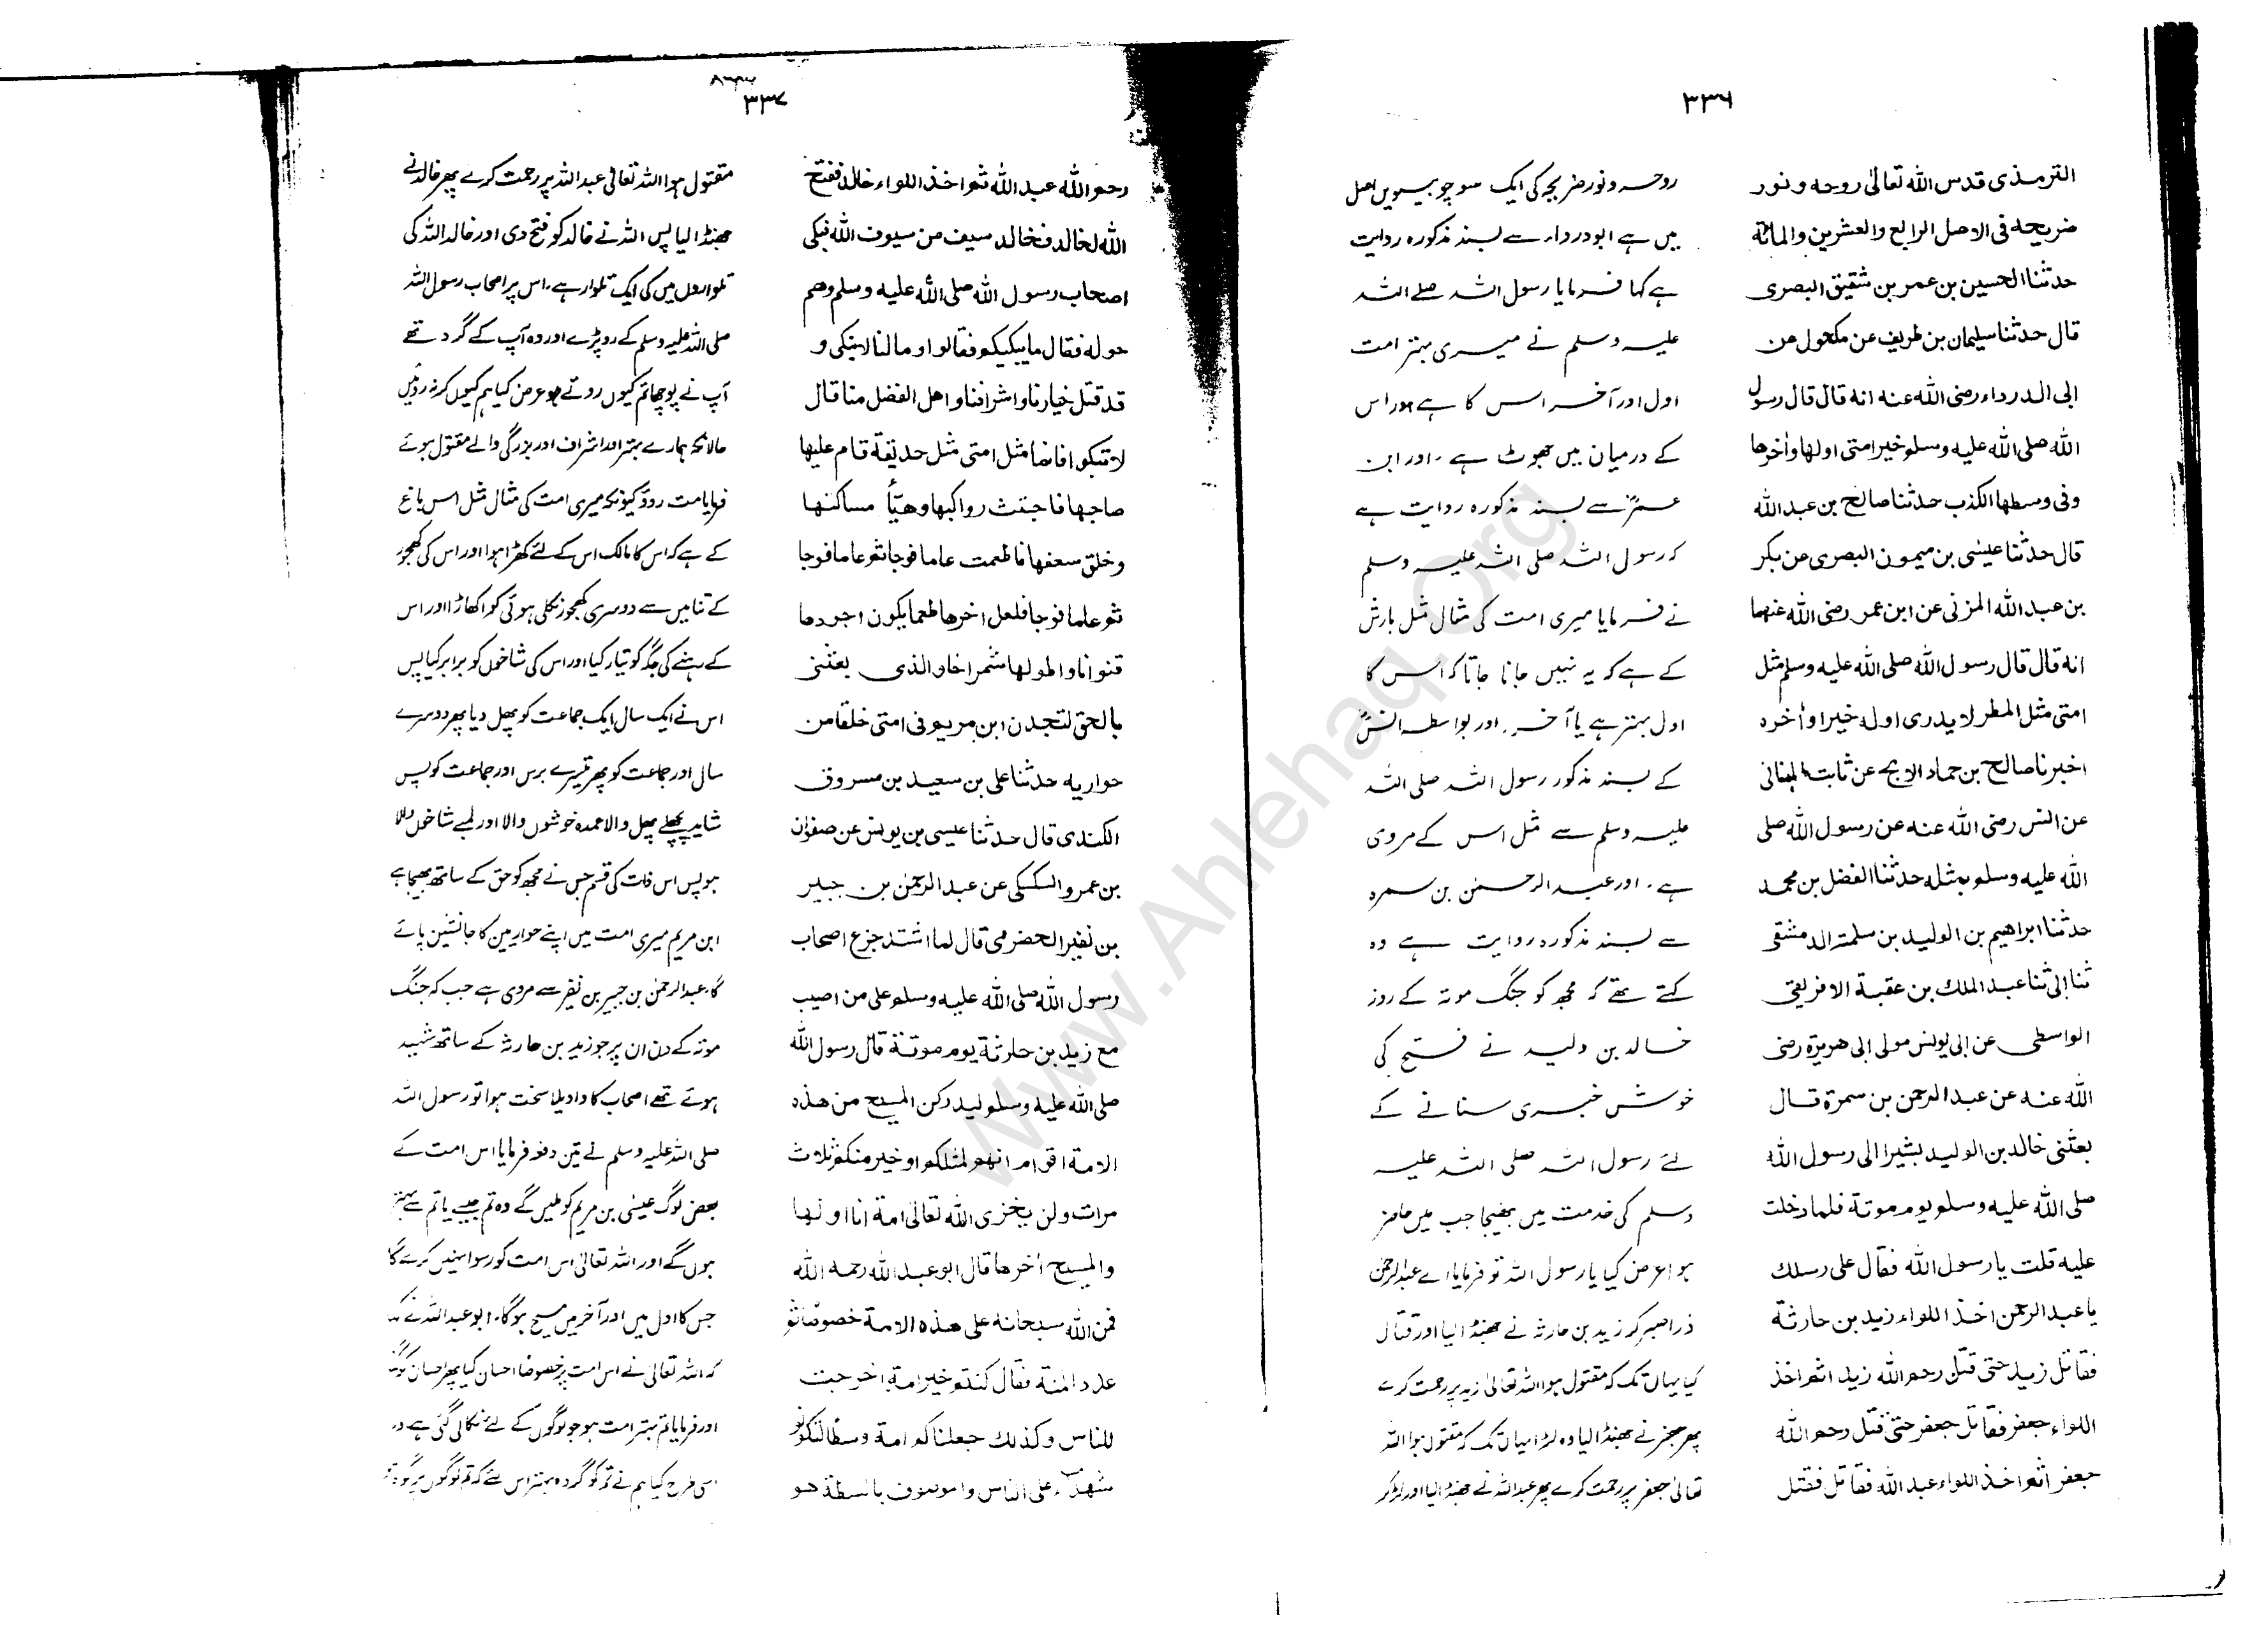 ٣٣٦
الترمذی قدس الله تعالیٰ روحه ونور
ضریحه فی الاصل الرابع والعشرین والمائة
حدثنا الحسین بن عمر بن شقیق البصری
قال حدثنا سلیمان بن طریف عن مکحول عن
ابی الدرداء رضی الله عنه انه قال قال رسول
الله صلی الله علیه وسلم خیر امتی اولها واٰخرها
وفی وسطها الکذب حدثنا صالح بن عبد الله
قال حدثنا عیسٰی بن میمون البصری عن بکر
بن عبد الله المزنی عن ابن عمر رضی الله عنهما
انه قال قال رسول الله صلی الله علیه وسلم مثل
امتی مثل المطر لا یدری اوله خیر او اٰخره
اخبرنا صالح بن حماد الابح عن ثابت البنانی
عن انس رضی الله عنه عن رسول الله صلی
الله علیه وسلم بمثله حدثنا الفضل بن محمد
حدثنا ابراهیم بن الولید بن سلمة الدمشقی
ثنا ابی ثنا عبد الملك بن عقبة الافریقی
الواسطی عن ابی یونس مولی ابی هریرة رضی
الله عنه عن عبد الرحمن بن سمرة قال
بعثنی خالد بن الولید بشیرا الی رسول الله
صلی الله علیه وسلم یوم موتة فلما دخلت
علیه قلت یا رسول الله فقال علی رسلك
یا عبد الرحمن اخذ اللواء زید بن حارثة
فقاتل زید حتی قتل رحم الله زید اثم اخذ
اللواء جعفر فقاتل جعفر حتی قتل رحم الله
جعفر اثم اخذ اللواء عبد الله فقاتل فقتل
روحہ ونور ضریحہ کی ایک سو چوبیسویں اصل
میں ہے ابودرداء سے بسند مذکورہ روایت
ہے کہا فرمایا رسول اللہ صلے اللہ
علیہ وسلم نے میری بہتر امت
اول اور آخر اس کا ہے اور اس
کے درمیان میں جھوٹ ہے۔ اور ابن
عمرؓ سے بسند مذکورہ روایت ہے
کہ رسول اللہ صلی اللہ علیہ وسلم
نے فرمایا میری امت کی مثال مثل بارش
کے ہے کہ یہ نہیں جانا جاتا کہ اس کا
اول بہتر ہے یا آخر۔ اور بواسطہ انسؓ
کے بسند مذکور رسول اللہ صلی اللہ
علیہ وسلم سے مثل اس کے مروی
ہے۔ اور عبد الرحمٰن بن سمرہ
سے بسند مذکورہ روایت ہے وہ
کہتے تھے کہ مجھ کو جنگ موتہ کے روز
خالد بن ولید نے فتح کی
خوش خبری سنانے کے
لئے رسول اللہ صلی اللہ علیہ
وسلم کی خدمت میں بھیجا جب میں حاضر
ہوا عرض کیا یا رسول اللہ تو فرمایا اے عبدالرحمٰن
ذرا صبر کر زید بن حارثہ نے جھنڈا لیا اور قتال
کیا یہاں تک کہ مقتول ہوا اللہ تعالیٰ زید پر رحمت کرے
پھر جعفر نے جھنڈا لیا وہ لڑا یہاں تک کہ مقتول ہوا اللہ
تعالیٰ جعفر پر رحمت کرے پھر عبداللہ نے جھنڈا لیا اور لڑ کر
٣٣٧
رحم الله عبد الله ثم اخذ اللواء خالد ففتح
الله لخالد فخالد سیف من سیوف الله فبکی
اصحاب رسول الله صلی الله علیه وسلم وهم
حوله فقال ما یبکیکم فقالوا وما لنا لا نبکی و
قد قتل خیارنا واشرافنا واهل الفضل منا قال
لا تبکوا فانما مثل امتی مثل حدیقة قام علیها
صاحبها فاجتث رواکبها وهیّأ مساکنها
وخلق سعفها فاطعمت عاما فوجا ثم عاما فوجا
ثم عاما فوجا فلعل اٰخرها طعما یکون اجودها
قنوانا واطولها شمراخا والذی بعثنی
بالحق لتجدن ابن مریم فی امتی خلقا من
حواریه حدثنا علی بن سعید بن مسروق
الکندی قال حدثنا عیسی بن یونس عن صفوان
بن عمرو السکسکی عن عبد الرحمٰن بن جبیر
بن نفیر الحضرمی قال لما اشتد جزع اصحاب
رسول الله صلی الله علیه وسلم علی من اصیب
مع زید بن حارثة یوم موتة قال رسول الله
صلی الله علیه وسلم لیدرکن المسیح من هذه
الامة اقوام انهم لمثلکم او خیر منکم ثلاث
مرات ولن یخزی الله تعالیٰ امة انا اولها
والمسیح اٰخرها قال ابو عبد الله رحمه الله
فمن الله سبحانه علی هذه الامة خصوصًا ثم
عدد المنة فقال کنتم خیر امة اخرجت
للناس وکذلك جعلناکم امة وسطا لتکونوا
شهداء علی الناس والموصوف بالسطة هو
مقتول ہوا اللہ تعالیٰ عبد اللہ پر رحمت کرے پھر خالد نے
جھنڈا لیا پس اللہ نے خالد کو فتح دی اور خالد اللہ کی
تلواروں میں کی ایک تلوار ہے۔ اس پر اصحاب رسول اللہ
صلی اللہ علیہ وسلم کے روپڑے اور وہ آپ کے گرد تھے
آپ نے پوچھا تم کیوں روتے ہو عرض کیا ہم کیوں کر نہ روئیں
حالانکہ ہمارے بہتر اور اشراف اور بزرگی والے مقتول ہوئے
فرمایا مت روؤ کیونکہ میری امت کی مثال مثل اس باغ
کے ہے کہ اس کا مالک اس کے لئے کھڑا ہوا اور اس کی کھجور
کے تنا میں سے دوسری کھجور نکلی ہوئی کو اکھاڑا اور اس
کے رہنے کی جگہ کو تیار کیا اور اس کی شاخوں کو برابر کیا پس
اس نے ایک سال ایک جماعت کو پھل دیا پھر دوسرے
سال اور جماعت کو پھر تیسرے برس اور جماعت کو پس
شاید پچھلے پھل والا عمدہ خوشوں والا اور لمبے شاخوں والا
ہو پس اس ذات کی قسم جس نے مجھ کو حق کے ساتھ بھیجا ہے
ابن مریم میری امت میں اپنے حواریین کا جانشین پائے
گا۔ عبدالرحمٰن بن جبیر بن نفیر سے مروی ہے جب کہ جنگ
موتہ کے دن ان پر جو زید بن حارثہ کے ساتھ شہید
ہوئے تھے اصحاب کا واویلا سخت ہوا تو رسول اللہ
صلی اللہ علیہ وسلم نے تین دفعہ فرمایا اس امت کے
بعض لوگ عیسٰی بن مریم کو ملیں گے وہ تم جیسے یا تم سے بہتر
ہوں گے اور اللہ تعالیٰ اس امت کو رسوا نہیں کرے گا
جس کا اول میں اور آخر میں مسیح ہوگا۔ ابو عبد اللہ نے کہا
کہ اللہ تعالیٰ نے اس امت پر خصوصًا احسان کیا پھر احسان
اور فرمایا تم بہتر امت ہو جو لوگوں کے لئے نکالی گئی ہے
اسی طرح کیا ہم نے تم کو گروہ بہتر اس لئے کہ تم لوگوں پر
www.Ahlehaq.Org